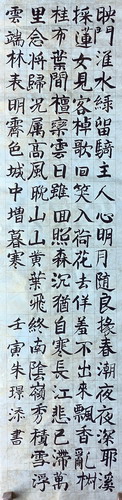 映門淮水綠留騎主人心明月隨良掾春潮夜夜深耶溪
採蓮女見客棹歌回笑入荷花去佯羞不出來飄香亂椒
桂布葉間檀欒雲日雖回照森沉猶自寒長江悲已滯萬
里念將歸況屬高風晚山山黃葉飛終南陰嶺秀積雪浮
雲端林表明霽色城中增暮寒 壬寅朱璟添書